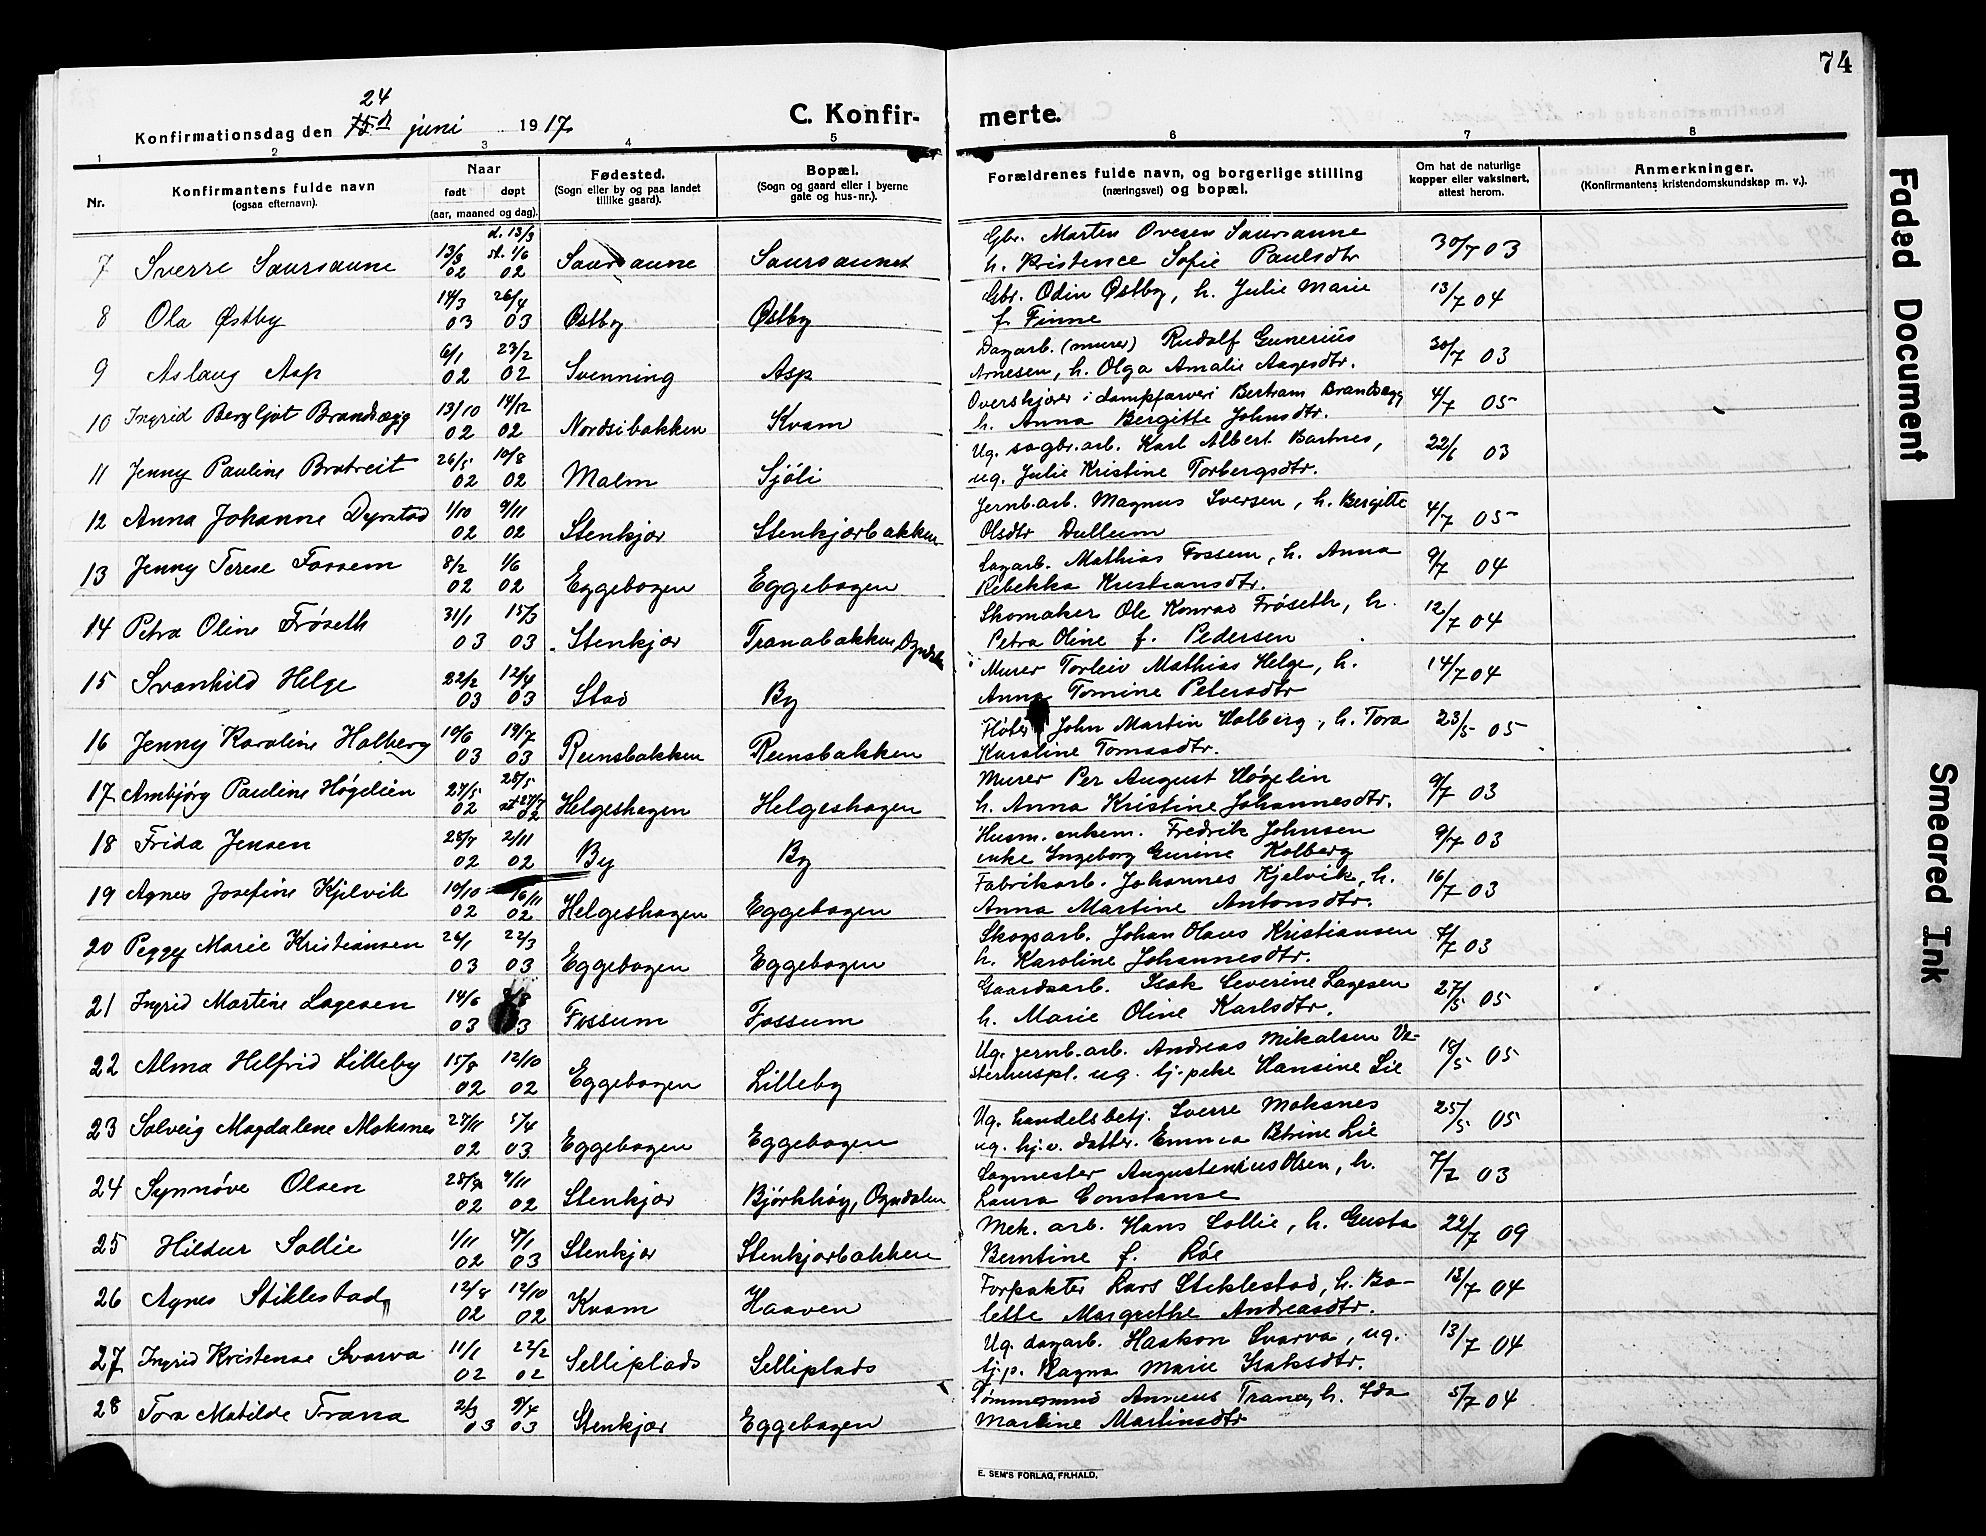 74
24
Konfirmationsdag den 15de juni 1917
C. Konfir-merte.
1 2 3 4 5 6 7 8
Nr.
Konfirmantens fulde navn
(ogsaa efternavn).
Naar
født døpt
(aar, maaned og dag).
Fødested.
(Sogn eller by og paa landet
tillike gaard).
Bopæl.
(Sogn og gaard eller i byerne
gate og hus-nr.).
Forældrenes fulde navn, og borgerlige stilling
(næringsvei) og bopæl.
Om hat de naturlige
kopper eller vaksinert,
attest herom.
Anmerkninger.
(Konfirmantens kristendomskundskap m. v.).
d. 13/3
7 Sverre Saursaune 13/3 02 st. 1/6 02 Saursaune Saursaunet Gbr. Morten Ovesen Saursaune
h. Kristence Sofie Paulsdtr 30/7 03
8 Ola Østby 14/3 03 26/4 03 Østby Østby Gbr. Odin Østby, h. Julie Marie
f. Finne 13/7 04
9 Aslaug Asp 6/1 02 23/2 02 Svenning Asp Dagarb. (murer) Rudolf Gunerius
Arnesen, h. Olga Amalie Aagesdtr. 30/7 03
10 Ingrid Bergljot Brandsegg 13/10 02 14/12 02 Nordsibakken Kvam Overskjærer i dampfarveri Bertram Brandsegg
h. Anna Bergitte Johnsdtr. 4/7 05
11 Jenny Pauline Bratreit 26/5 02 10/8 02 Malm Sjöli Ug. sagbr.arb. Karl Albert Bartnes,
ug. Julie Kristine Torbergsdtr. 22/6 03
12 Anna Johanne Dyrstad 1/10 02 9/11 02 Stenkjær Stenkjærbakken Jernb.arb. Magnus Iversen, h. Bergitte
Olsdtr Dullum 4/7 05
13 Jenny Terese Fossem 8/2 02 1/6 02 Eggebogen Eggebogen Sagarb. Mathias Fossem, h. Anna
Rebekka Kristiansdtr. 9/7 04
14 Petra Oline Frøseth 31/1 03 15/3 03 Stenkjær Tranabakken Ogndalen Skomaker Ole Konrad Frøseth, h.
Petra Oline f. Pedersen 12/7 04
15 Svanhild Helge 22/2 03 12/4 03 Stod By Murer Torleiv Mathias Helge, h.
Anna Tomine Petersdtr 14/7 04
16 Jenny Karoline Holberg 10/6 03 19/7 03 Reinsbakken Reinsbakken Fløter John Martin Holberg, h. Tora
Karoline Tomasdtr. 23/5 05
17 Arnbjørg Pauline Høgelien 27/5 02 28/5 st 27/7 02 Helgeshagen Helgeshagen Murer Per August Høgelin
h. Anna Kristine Johannesdtr. 9/7 03
18 Frida Jensen 28/7 02 2/11 02 By By Husm. enkem. Fredrik Johnsen
enke Ingeborg Gurine Kolberg 9/7 03
19 Agnes Josefine Kjelvik 10/10 02 16/11 02 Helgeshagen Eggebogen Fabrikarb. Johannes Kjelvik, h.
Anna Martine Antonsdtr. 16/7 03
20 Peggy Marie Kristiansen 26/1 03 22/3 03 Eggebogen Eggebogen Skogsarb. Johan Olaus Kristiansen
h. Karoline Johannesdtr. 8/7 03
21 Ingrid Martine Lagesen 14/6 03 03 Fossum Fossum Gaardsarb. Isak Severine Lagesen
h. Marie Oline Karlsdtr. 27/5 05
22 Alma Helfrid Lilleby 15/8 02 12/10 02 Eggebogen Lilleby Ug. jernb.arb. Andreas Mikalsen Ve-
sterhuspl. ug. tj.peke Hansine Lie 18/5 05
23 Solveig Magdalene Moksnes 27/11 02 5/4 03 Eggebogen Eggebogen Ug. handelsbetj. Sverre Moksnes
ug. hj.v. datter. Emma Petrine Lie 25/5 05
24 Synnøve Olsen 28/9 02 9/11 02 Stenkjær Björkhöy, Ogndalen Sagmester Augustenius Olsen, h.
Laura Constanse 7/7 03
25 Hildur Sollie 1/11 02 4/1 03 Stenkjær Stenkjærbakken Mek. arb. Hans Sollie, h. Gusta
Berntine f. Röe 22/7 09
26 Agnes Stiklestad 12/8 02 12/10 02 Kvam Haaven Forpakter Lars Stiklestad, h. Bo-
lette Margrethe Andreasdtr. 13/7 04
27 Ingrid Kristense Svarva 11/1 02 22/2 02 Selliplads Selliplads Ug. dagarb. Haakon Svarva, ug.
tj.p. Ragna Marie Isaksdtr. 13/7 04
28 Tora Matilde Trana 2/3 03 9/4 03 Stenkjær Eggebogen Tømmermand Anneus Trana, h. Ida
Martine Martinsdtr 5/7 04
E. SEM'S FORLAG, FR.HALD.
Faded Document
Smeared Ink